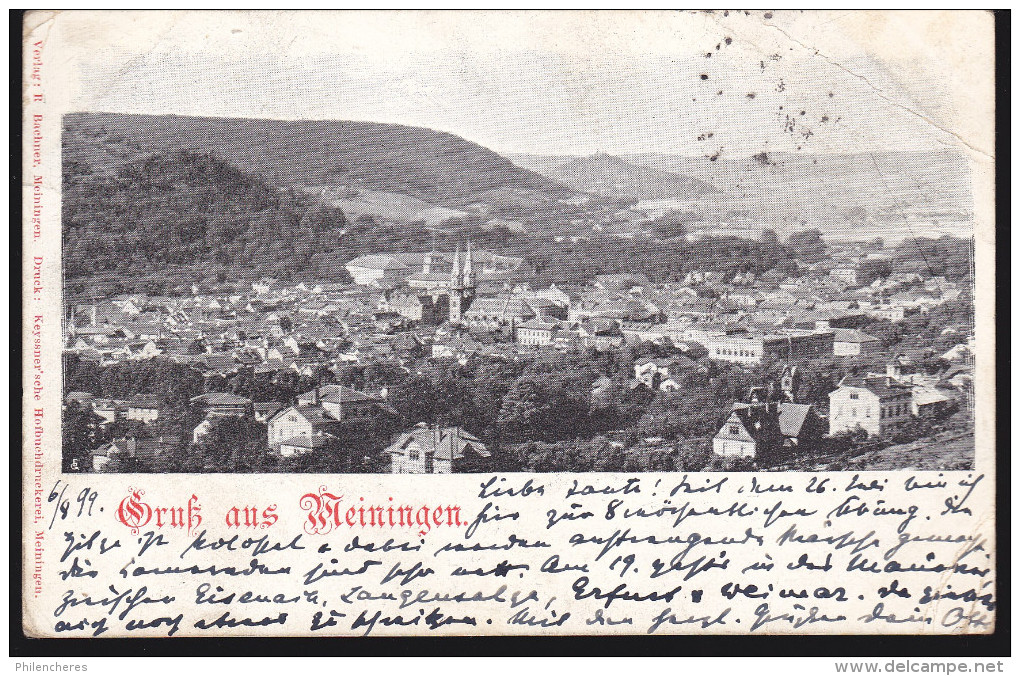 Verlag: R. Bachner, Meiningen. Druck: Keyssner'sche Hofbuchdruckerei, Meiningen.
6/8 99.
Gruß aus Meiningen.
Liebe Tante! Seit dem 26. bin ich
hier zur 8 wöchentlichen Übung. Die
Hitze ist kolossal & dabei werden anstrengende Märsche gemacht
die Kameraden sind sehr nett. Am 19. geht's in das Manöver
zwischen Eisenach, Langensalza, Erfurt & Weimar. da giebt's
auch noch etwas zu schwitzen. Mit den herzl. Grüßen Dein Otto
Philencheres
www.delcampe.net